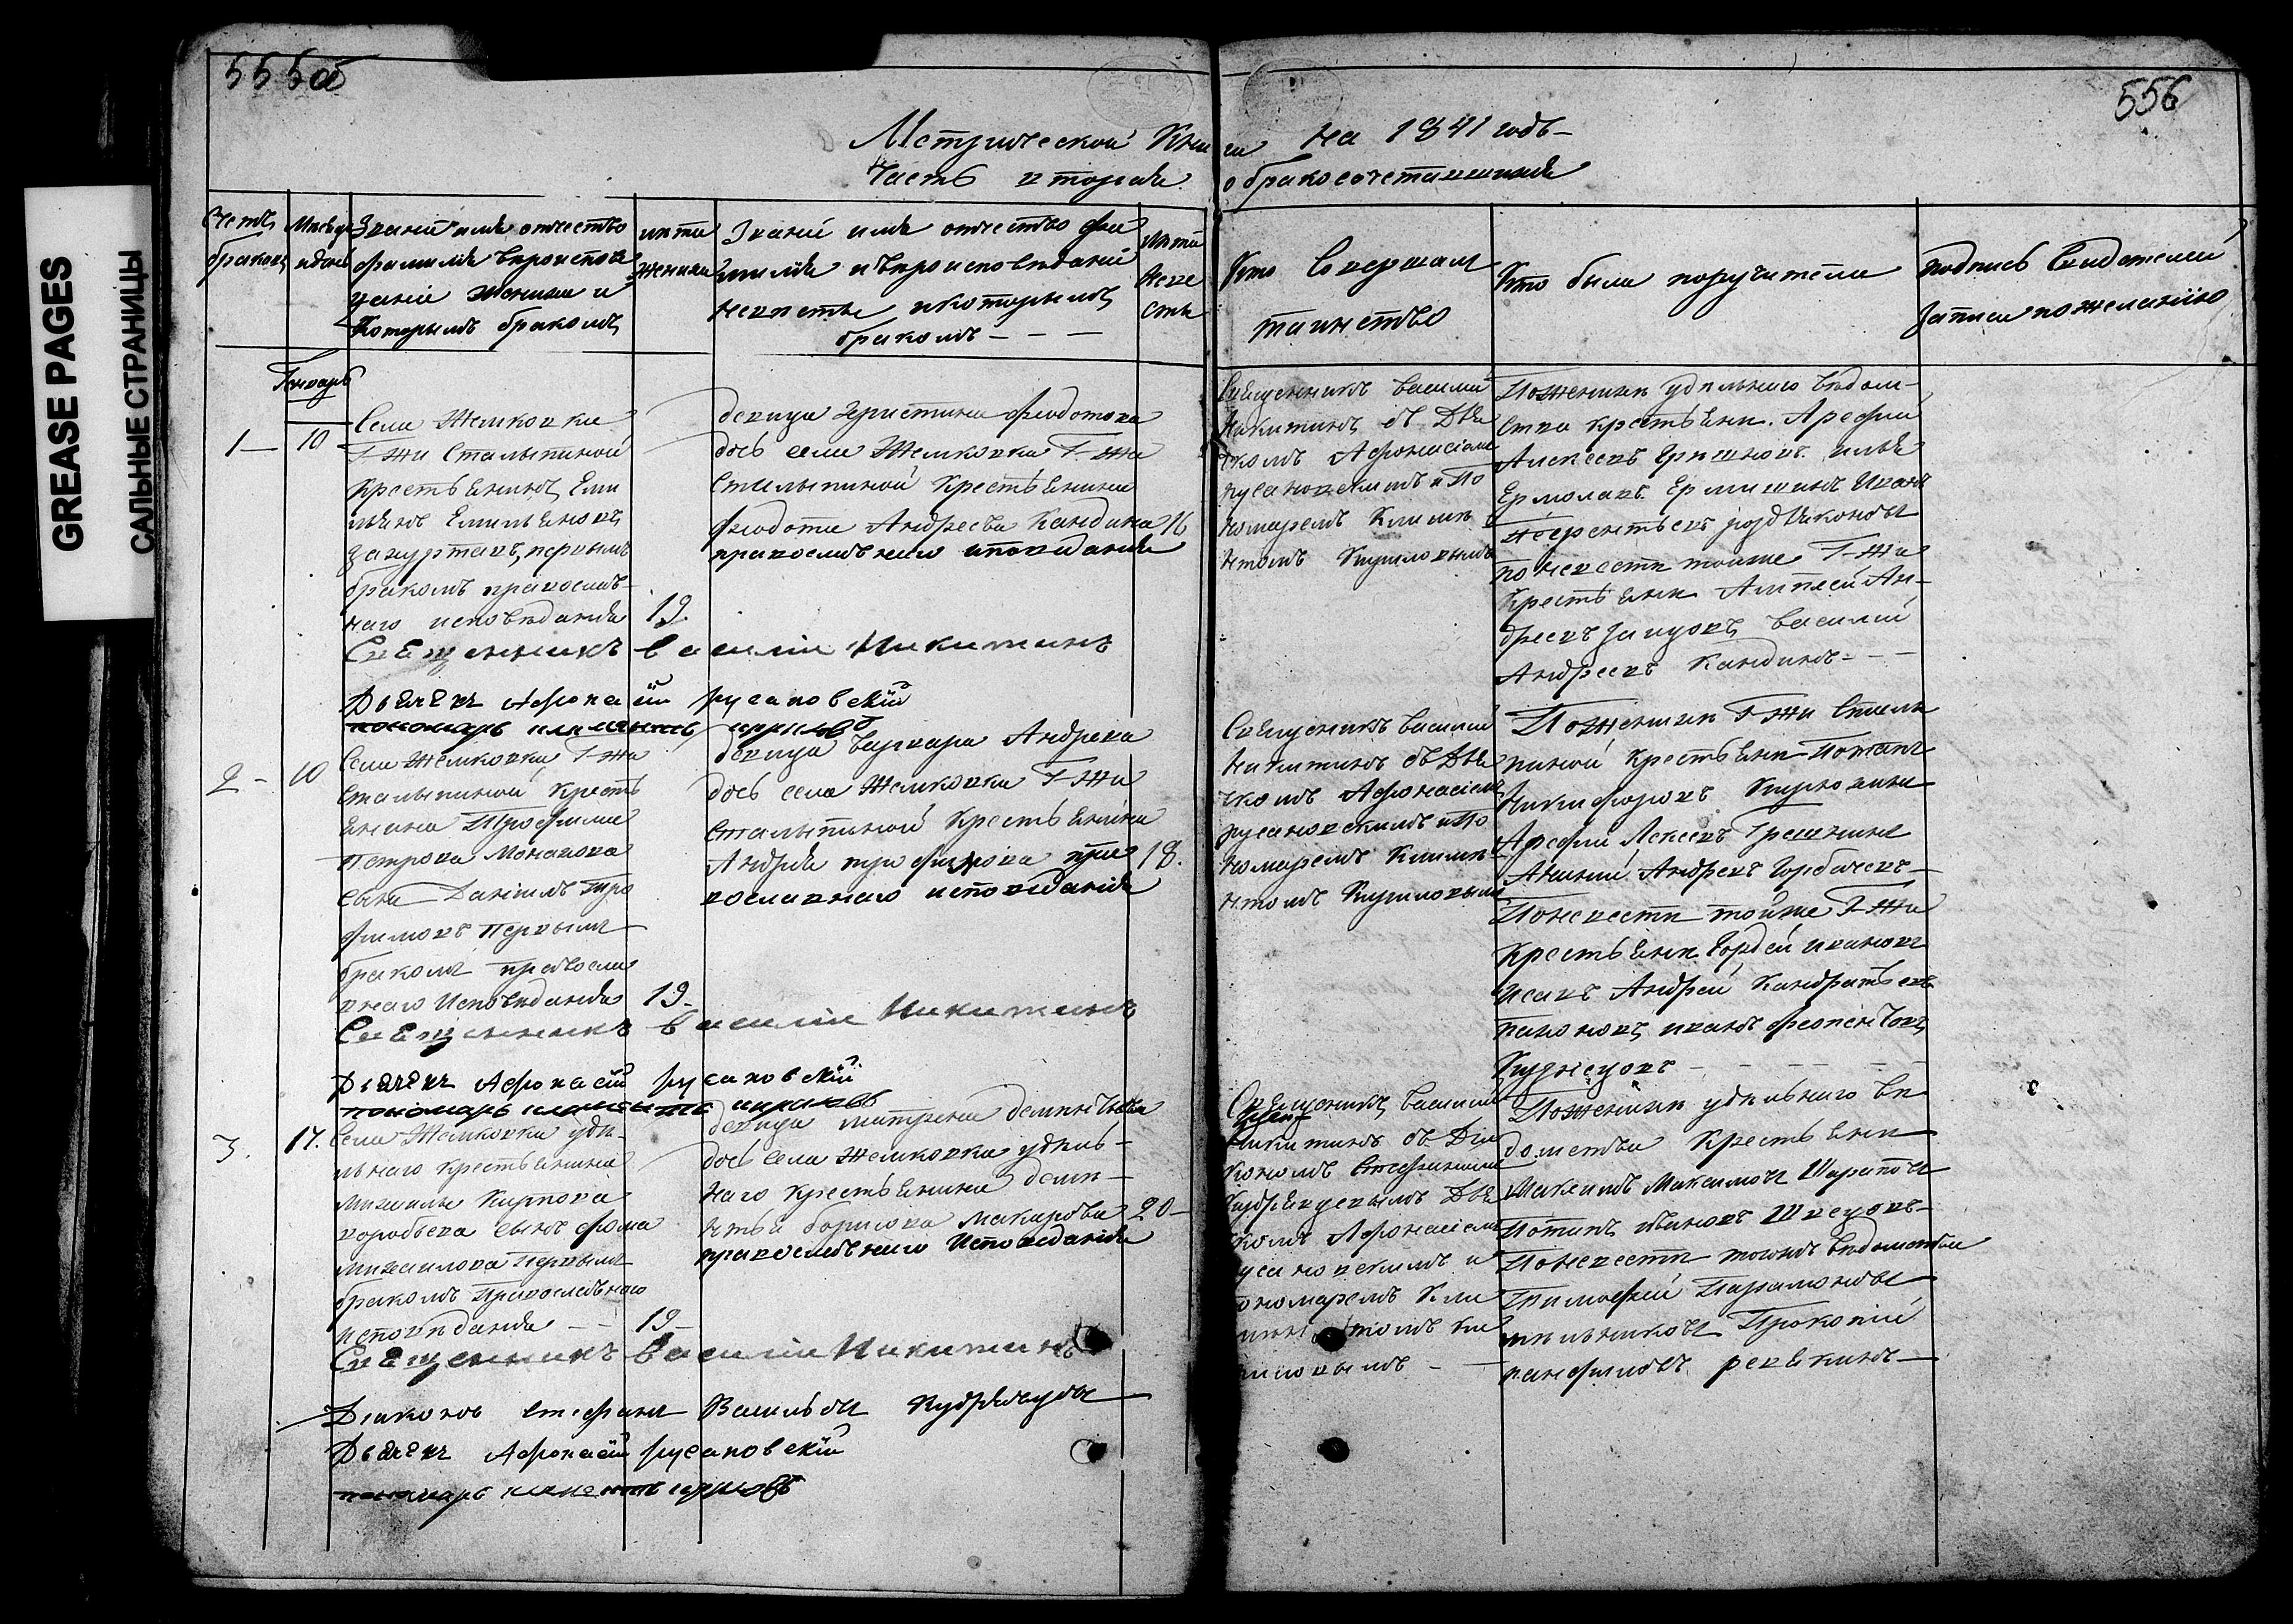 GREASE PAGES
САЛЬНЫЕ СТРАНИЦЫ
555об
556
Метрической Книги на 1841 годъ
Часть вторая о бракосочетавшихся
Счетъ браковъ
Месяцъ и день
Званiе имя отчество
фамилiя вероиспове
данiе жениха и
Которымъ бракомъ
лета
жениха
Званiе имя отчество фа
милiя и вероисповеданiе
невесты и которымъ
бракомъ
лета
неве
сты
Кто совершал
таинство
Кто были поручители
подпись свидетелей
записи по желанiю
Генварь
1
10
Села Жемковки
Г-жи Сталыпиной
крестьянинъ Еми
льянъ Емильяновъ
первымъ
бракомъ православ
наго исповеданiя
19.
девица Христина Федотова
дочь села Жемковки Г-жи
Сталыпиной крестьянина
Федота Андреева Кандина
православнаго исповеданiя
16
Священникъ Василiй
Никитинъ съ Дья
чкомъ Афонасiемъ
Русановскимъ и По
номаремъ Климе
нтомъ Кириловымъ
По женихе удельнаго ведом-
ства крестьяне Арефий
Алексеевъ Гришинъ Илья
Ермолаевъ Ермишинъ Иванъ
по невесте тойже Г-жи
Крестьяне Ан-
дреевъ Василiй
Андреевъ Кандинъ
Священникъ Василiй Никитинъ
Дьячекъ Афонасiй Русановскiй
пономарь Климентъ Кириловъ
2
10
Села Жемковки Г-жи
Сталыпиной Кресть
янина Трофима
Петрова Монахова
сынъ Данiилъ Тро
фимовъ первымъ
бракомъ правосла
внаго исповеданiя
19.
девица Варвара Андреева
дочь села Жемковки Г-жи
Сталыпиной Крестьянина
Андрея Трифонова пра
вославнаго исповеданiя
18.
Священникъ Василiй
Никитинъ съ Дья
чкомъ Афонасiемъ
Русановскимъ и По
номаремъ Климе
нтомъ Кириловымъ
По женихе Г-жи Сталы
пиной крестьяне Потапъ
Никифоровъ
Арефiй Алексеевъ Гришинъ
Андреевъ Горбачевъ
По невесте тойже Г-жи
Крестьяне Гордей Ивановъ
Исаевъ Андрей Кандратьевъ
Иванъ
Кузнецовъ
Священникъ Василiй Никитинъ
Дьячекъ Афонасiй Русановскiй
пономарь Климентъ Кириловъ
3.
17.
Села Жемковки уде-
льнаго крестьянина
Михаилы Карпова
Воробьева сынъ Фома
Михаиловъ первымъ
бракомъ Православнаго
исповеданiя
19
девица Матрена Дементьева
дочь села Жемковки удель-
наго Крестьянина Деме-
нтья Борисова Макарова
православнаго исповеданiя
20
Священникъ Василiй
Никитинъ съ Дiа
кономъ Стефаномъ
Кудрявцевымъ Дья
чкомъ Афонасiемъ
Русановскимъ и
пономаремъ Кли
ментомъ Ки
риловымъ
По женихе удельнаго ве
домства Крестьяне
Максимъ Максимовъ Шараповъ
Потапъ Ивановъ Швецовъ
По невесте тогожъ ведомства
Тимофей Парамоновъ
Мельниковъ Прокопiй
Панфиловъ Ревякинъ
Священникъ Василiй Никитинъ
Дiаконъ Стефанъ Васильевъ Кудрявцевъ
Дьячекъ Афонасiй Русановскiй
пономарь Климентъ Кириловъ